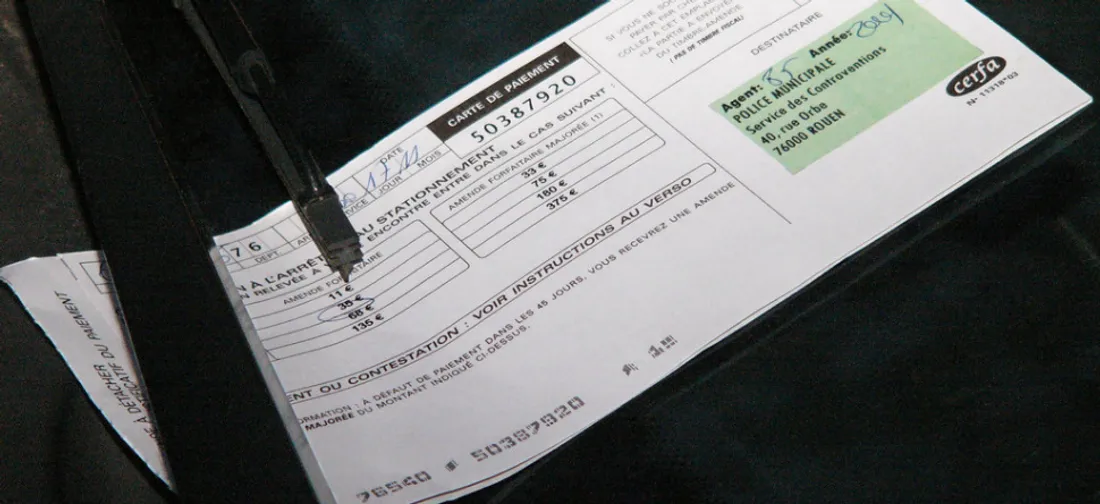 SI VOUS NE SO
PAYER PAR CH
COLLEZ A CET EMPLA
«LA PARTIE A ENVOYE
DU TIMBRE-AMENDE
( PAS DE TIMBRE FISCAL)
DESTINATAIRE
Agent: 85 Année:
POLICE MUNICIPALE
Service des Contraventions
40, rue Orbe
76000 ROUEN
cerfa
N° 11318*03
CARTE DE PAIEMENT
50387920
DATE
17 11
JOUR MOIS
76
DEPT.
N A L'ARRÊT AU STATIONNEMENT
N RELEVÉE À ENCONTRE ENTRE DANS LE CAS SUIVANT :
AMENDE FORFAITAIRE
11 €
35 €
68 €
135 €
AMENDE FORFAITAIRE MAJORÉE (1)
33 €
75 €
180 €
375 €
ENT OU CONTESTATION : VOIR INSTRUCTIONS AU VERSO
ORMATION : A DÉFAUT DE PAIEMENT DANS LES 45 JOURS, VOUS RECEVREZ UNE AMENDE
MAJORÉE DU MONTANT INDIQUÉ CI-DESSUS.
76540 50387920
À DÉTACHER
DU PAIEMENT